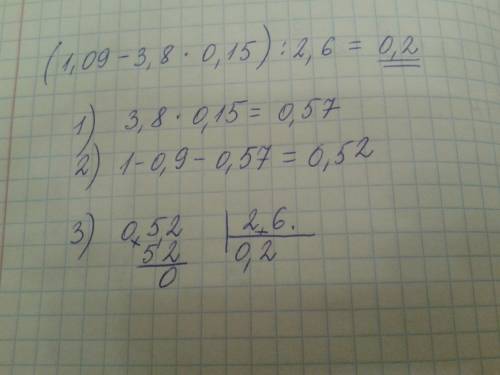 (1,09-3,8·0,15):2,6=0,2
1) 3,8·0,15=0,57
2) 1-0,9-0,57=0,52
3) 0,52 | 2,6.
52 0,2
0